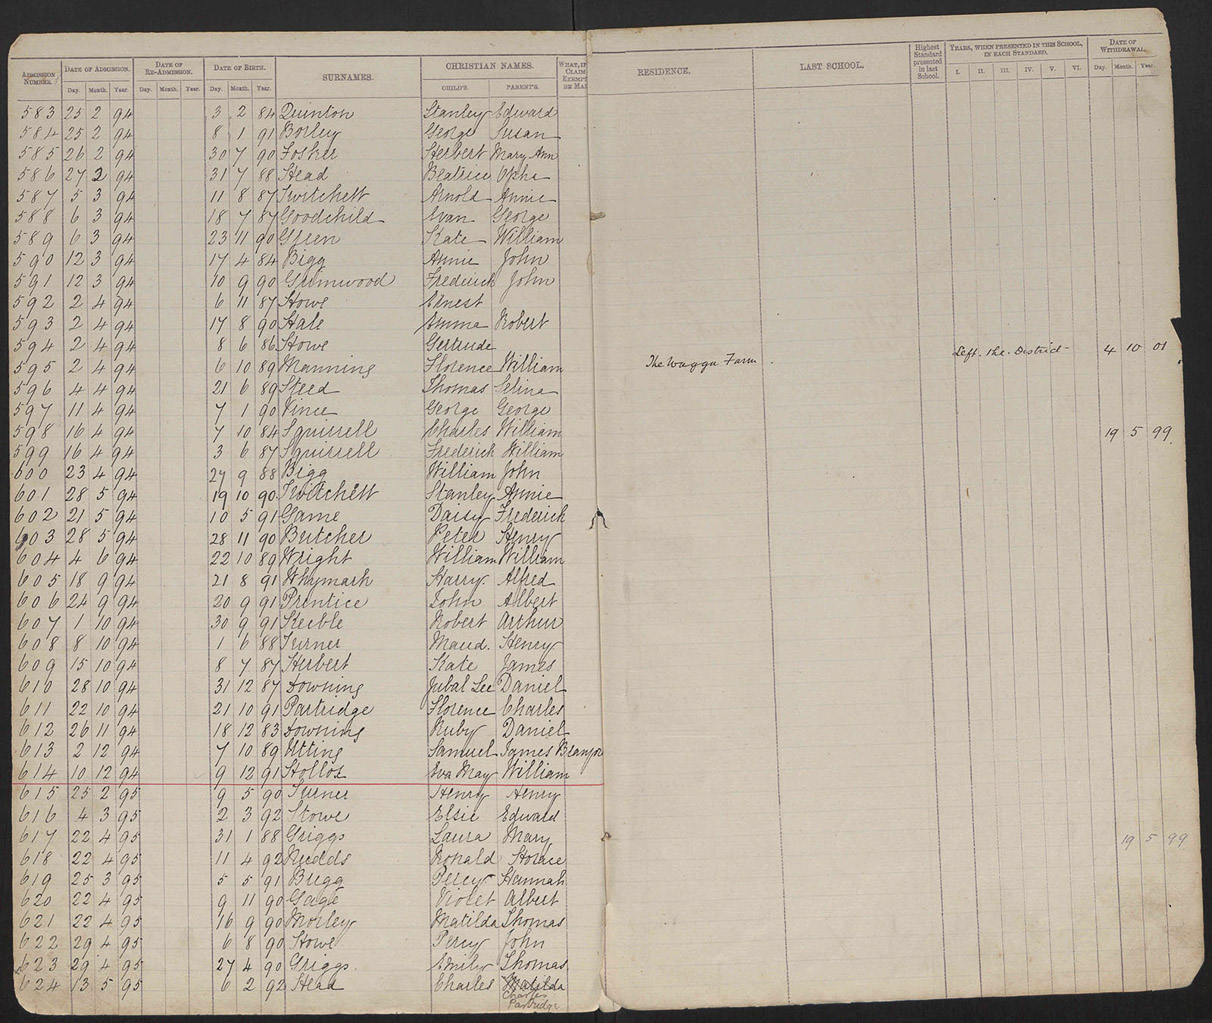 ADMISSION NUMBER. DATE OF ADMISSION. DATE OF RE-ADMISSION. DATE OF BIRTH. SURNAMES. CHRISTIAN NAMES. WHAT, IF CLAIM EXEMPT BE MA RESIDENCE. LAST SCHOOL. Highest Standard presented in last School. YEARS, WHEN PRESENTED IN THIS SCHOOL, IN EACH STANDARD. DATE OF WITHDRAWAL.
Day. Month. Year. Day. Month. Year. Day. Month. Year. CHILD'S. PARENT'S. I. II. III. IV. V. VI. Day. Month. Year.
583 25 2 94 3 2 84 Quinton Stanley Edward
584 25 2 94 8 1 91 Borley George Susan
585 26 2 94 30 7 90 Fosker Herbert Mary Ann
586 27 2 94 31 7 88 Head Beatrice
587 5 3 94 11 8 87 Twitchett Arnold Annie
588 6 3 94 18 7 87 Goodchild Evan George
589 6 3 94 23 11 90 Green Kate William
590 12 3 94 17 4 84 Bigg Annie John
591 12 3 94 10 9 90 Grimwood Frederick John
592 2 4 94 6 11 87 Howe Ernest
593 2 4 94 17 8 90 Hale Emma Robert
594 2 4 94 8 6 86 Howe Gertrude
595 2 4 94 6 10 89 Manning Florence William The Wagga Farm Left the District 4 10 01
596 4 4 94 21 6 89 Steed Thomas Selina
597 11 4 94 7 1 90 Vince George George
598 16 4 94 7 10 84 Squirrell Charles William 19 5 99
599 16 4 94 3 6 87 Squirrell Frederick William
600 23 4 94 27 9 88 Bigg William John
601 28 5 94 19 10 90 Twitchett Stanley Annie
602 21 5 94 10 5 91 Game Daisy Frederick
603 28 5 94 28 11 90 Butcher Peter Henry
604 4 6 94 22 10 89 Wright William William
605 18 9 94 21 8 91 Whymark Harry Alfred
606 24 9 94 20 9 91 Prentice John Albert
607 1 10 94 30 9 91 Keeble Robert Arthur
608 8 10 94 1 6 88 Turner Maud. Henry
609 15 10 94 8 7 87 Herbert Kate James
610 28 10 94 31 12 87 Downing Jubal Lee Daniel
611 22 10 94 21 10 91 Partridge Florence Charles
612 26 11 94 18 12 83 Downing Ruby Daniel
613 2 12 94 7 10 89 Utting Samuel James
614 10 12 94 9 12 91 Hollox Eva May William
615 25 2 95 9 5 90 Turner Henry Henry
616 4 3 95 2 3 92 Stowe Elsie Edward
617 22 4 95 31 1 88 Griggs Laura Mary 19 5 99
618 22 4 95 11 4 92 Rudds Ronald Horace
619 25 3 95 5 5 91 Brigg Percy Hannah
620 22 4 95 9 11 90 Gage Violet Albert
621 22 4 95 16 9 90 Morley Matilda Thomas
622 29 4 95 6 8 90 Howe Percy John
623 29 4 95 27 4 90 Griggs. Emily Thomas
624 13 5 95 6 2 92 Head Charles Matilda
Charles
Partridge